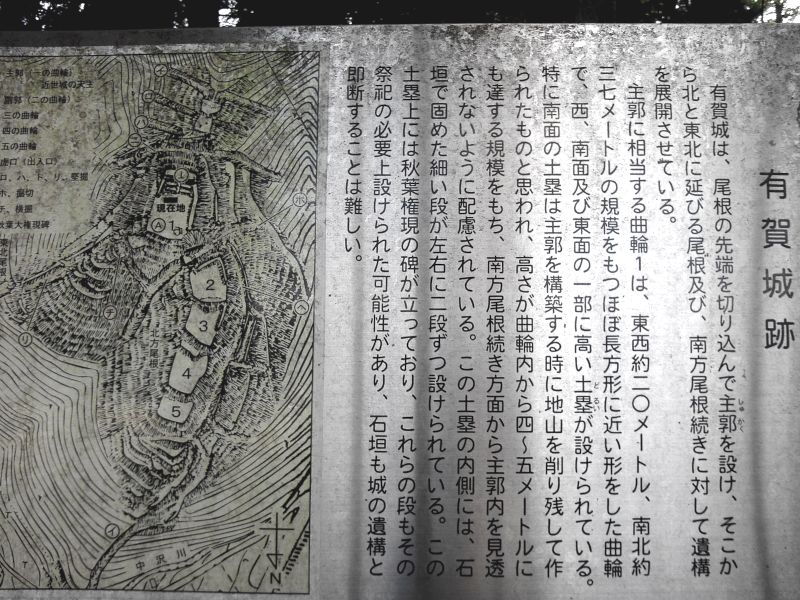 有賀城跡
有賀城は、尾根の先端を切り込んで主郭を設け、そこか
しゅかく
ら北と東北に延びる尾根及び、南方尾根続きに対して遺構
を展開させている。
主郭に相当する曲輪1は、東西約二〇メートル、南北約
三七メートルの規模をもつほぼ長方形に近い形をした曲輪
で、西、南面及び東面の一部に高い土塁が設けられている。
どるい
特に南面の土塁は主郭を構築する時に地山を削り残して作
られたものと思われ、高さが曲輪内から四〜五メートルに
も達する規模をもち、南方尾根続き方面から主郭内を見透
されないように配慮されている。この土塁の内側には、石
垣で固めた細い段が左右に二段ずつ設けられている。この
土塁上には秋葉権現の碑が立っており、これらの段もその
祭祀の必要上設けられた可能性があり、石垣も城の遺構と
即断することは難しい。
主郭（一の曲輪）
近世城の天主
副郭（二の曲輪）
三の曲輪
四の曲輪
五の曲輪
虎口（出入口）
ロ、ハ、ト、リ、竪堀
ホ、堀切
チ、横堀
秋葉大権現碑
東北尾根
現在地
2
3
4
5
北方尾根
チ
リ
ホ
ヘ
イ
中沢川
N